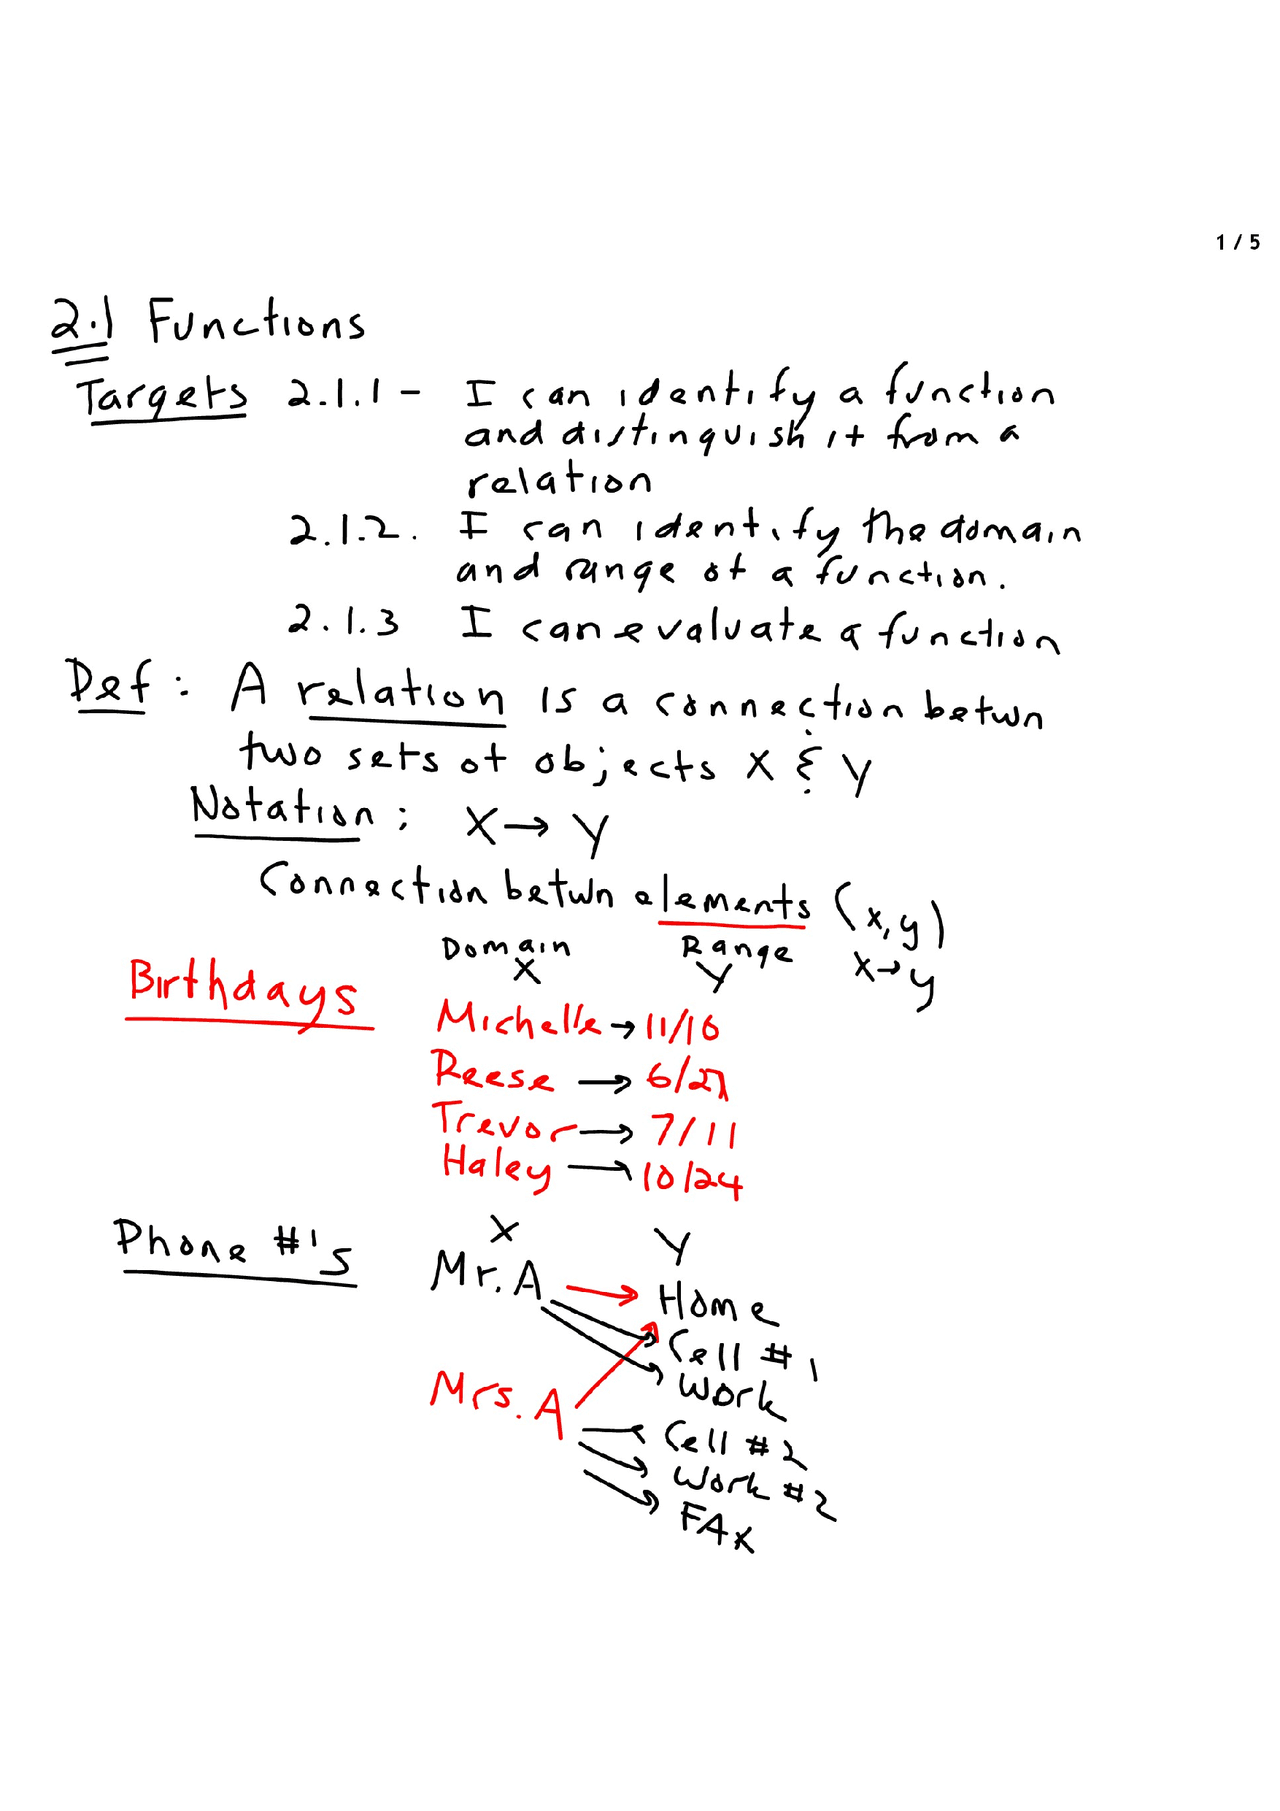 1 / 5
2.1 Functions
Targets 2.1.1 - I can identify a function
and distinguish it from a
relation
2.1.2. I can identify the domain
and range of a function.
2.1.3 I can evaluate a function
Def: A relation is a connection betwn
two sets of objects X & Y
Notation: X → Y
Connection betwn elements (x,y)
Domain Range x→y
X Y
Birthdays
Michelle → 11/16
Reese → 6/
Trevor → 7/11
Haley → 10/24
Phone #'s X Y
Mr. A → Home
Cell #1
Work
Mrs. A
Cell #2
Work #2
FAX